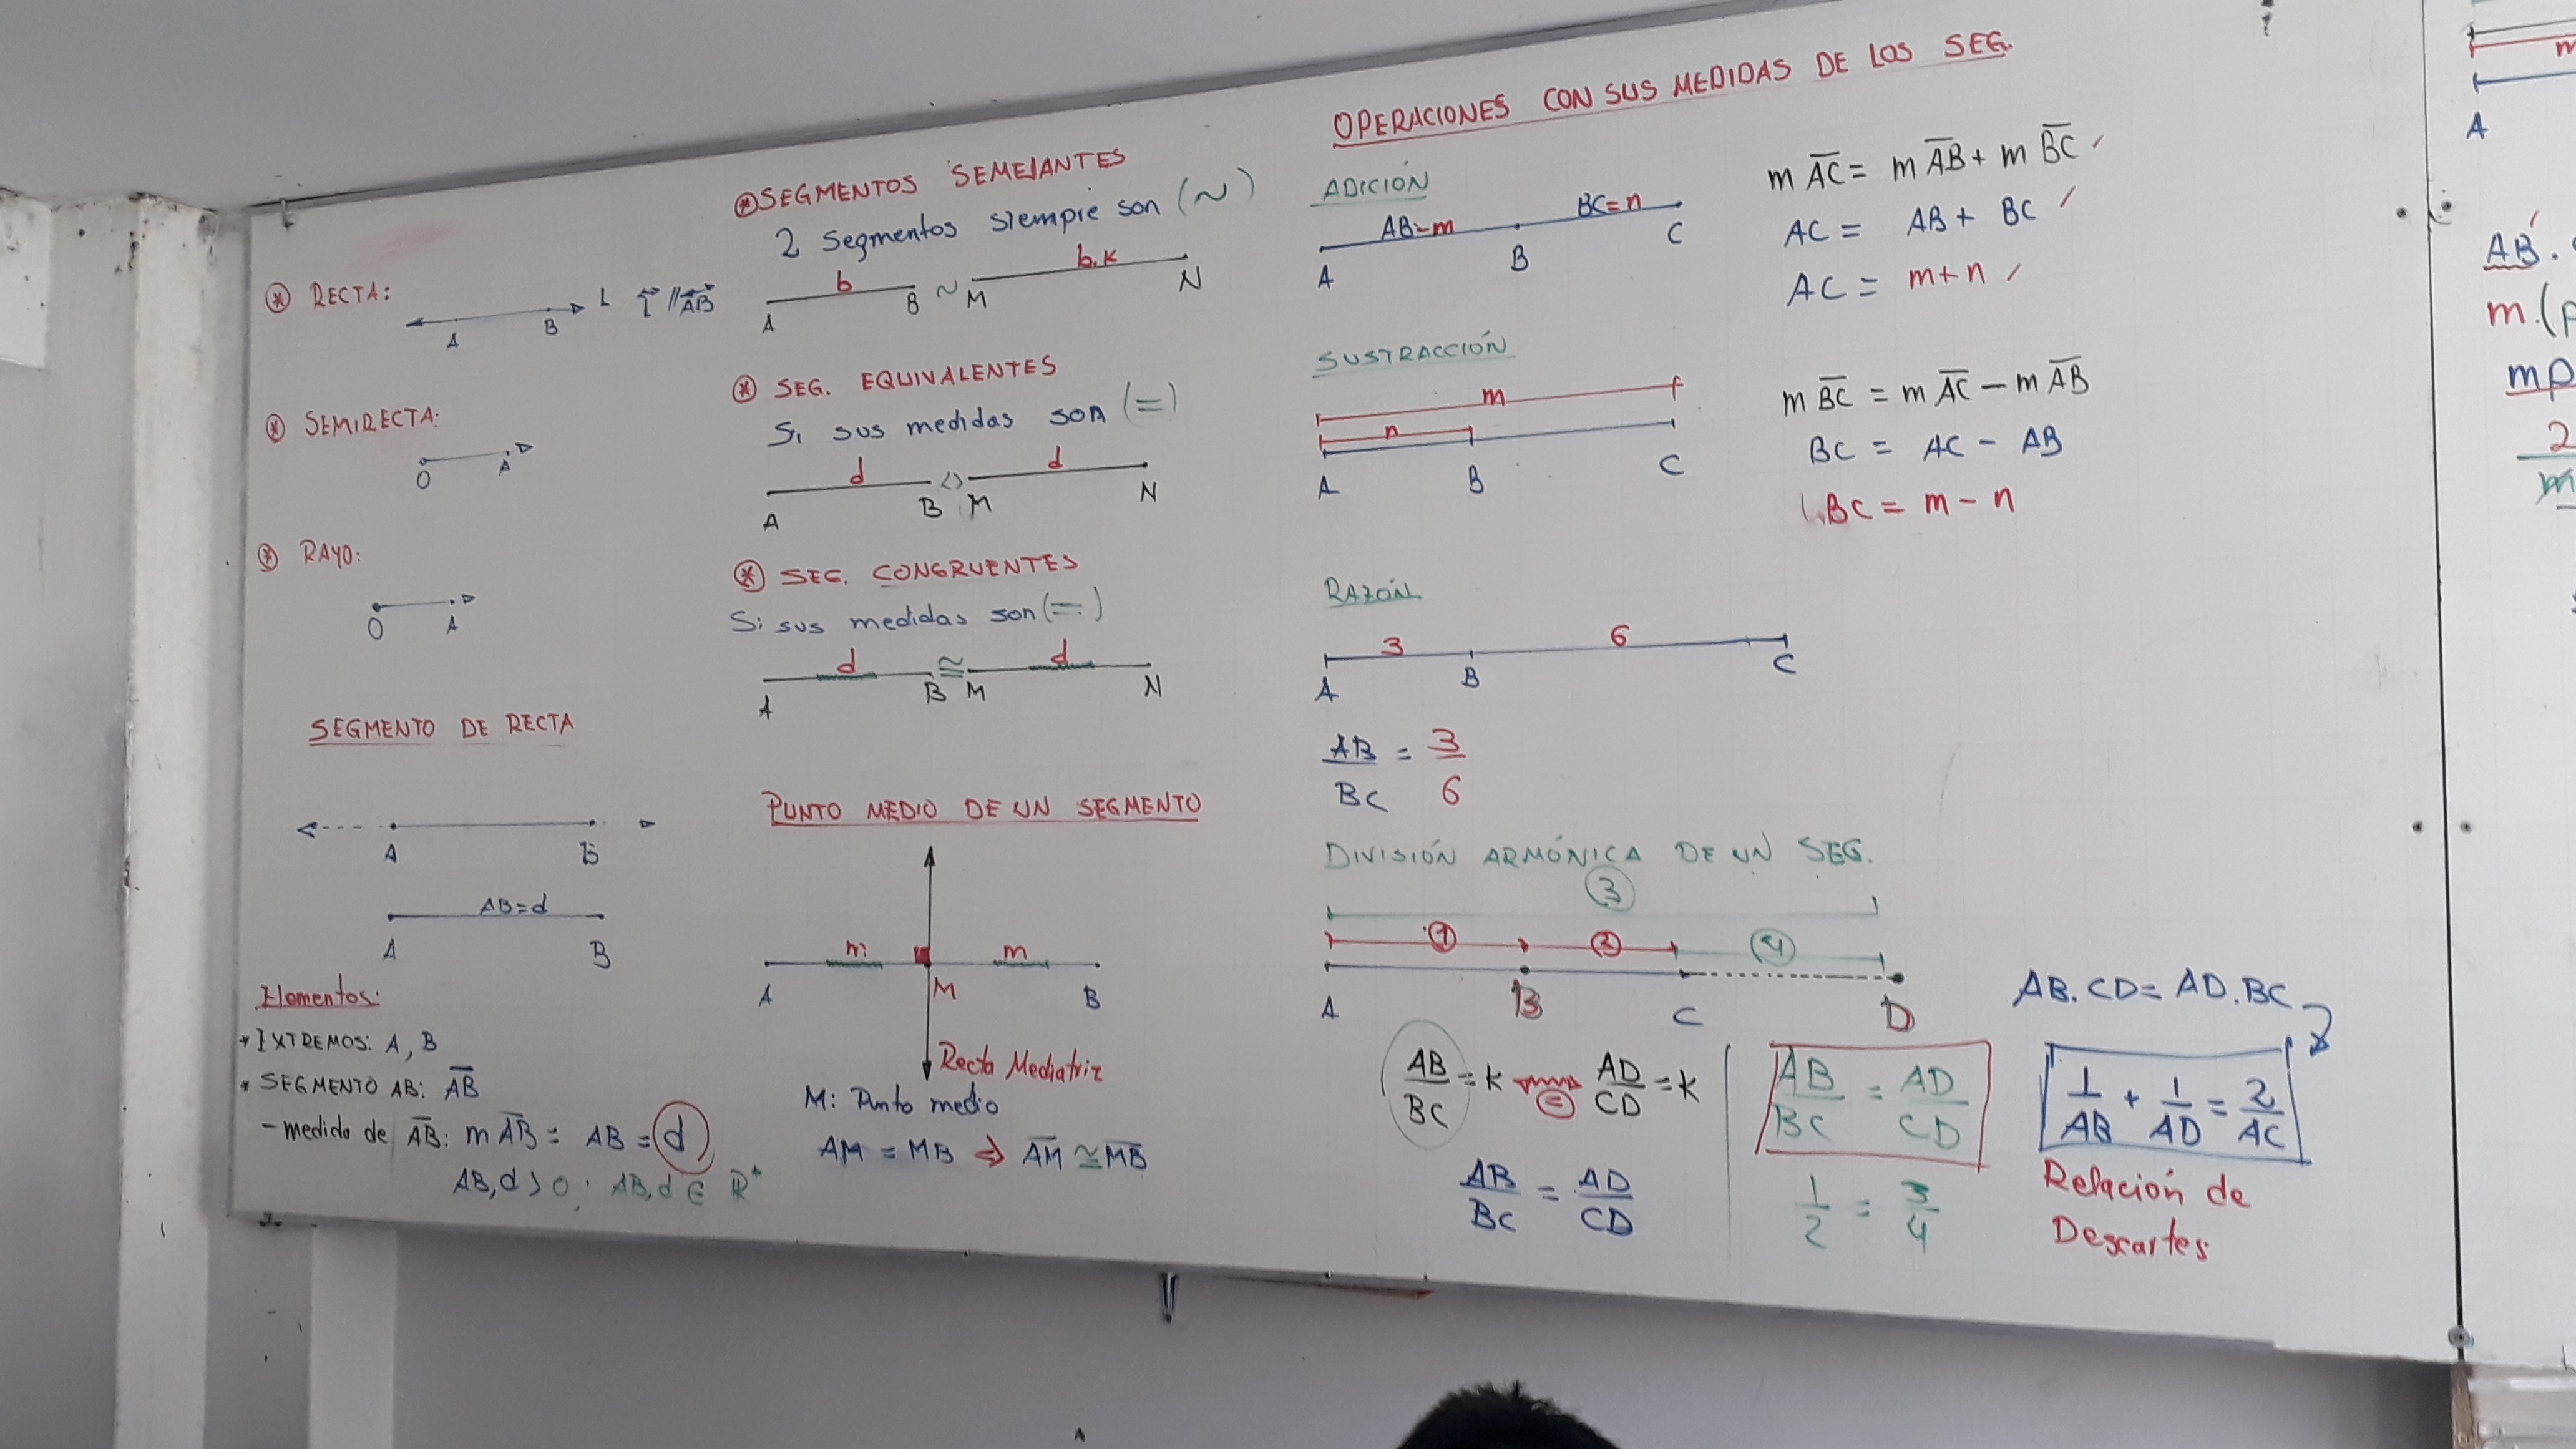 ⊛ RECTA:
A B L L // AB
⊛ SEMIRECTA:
O A
⊛ RAYO:
O A
SEGMENTO DE RECTA
A B
AB=d
A B
Elementos:
* EXTREMOS: A, B
* SEGMENTO AB: A̅B̅
- medida de A̅B̅: m A̅B̅ = AB = d
AB, d > 0 ; AB, d ∈ R⁺
⊛ SEGMENTOS SEMEJANTES
2 segmentos siempre son (~)
b b.k
A B ~ M N
⊛ SEG. EQUIVALENTES
Si sus medidas son (=)
d d
A B <> M N
⊛ SEG. CONGRUENTES
Si sus medidas son (=)
d d
A B ≅ M N
PUNTO MEDIO DE UN SEGMENTO
m m
A M B
Recta Mediatriz
M: Punto medio
AM = MB ⇒ A̅M̅ ≅ M̅B̅
OPERACIONES CON SUS MEDIDAS DE LOS SEG.
ADICIÓN
AB=m BC=n
A B C
m A̅C̅ = m A̅B̅ + m B̅C̅
AC = AB + BC
AC = m+n
SUSTRACCIÓN
m
n
A B C
m B̅C̅ = m A̅C̅ - m A̅B̅
BC = AC - AB
BC = m - n
RAZÓN
3 6
A B C
AB/BC = 3/6
DIVISIÓN ARMÓNICA DE UN SEG.
3
1 2 4
A B C D
AB/BC = k = AD/CD = k
AB/BC = AD/CD
AB/BC = AD/CD
1/2 = 3/4
AB.CD = AD.BC
1/AB + 1/AD = 2/AC
Relación de
Descartes
m
A
AB.
m.(p
mp
2
m